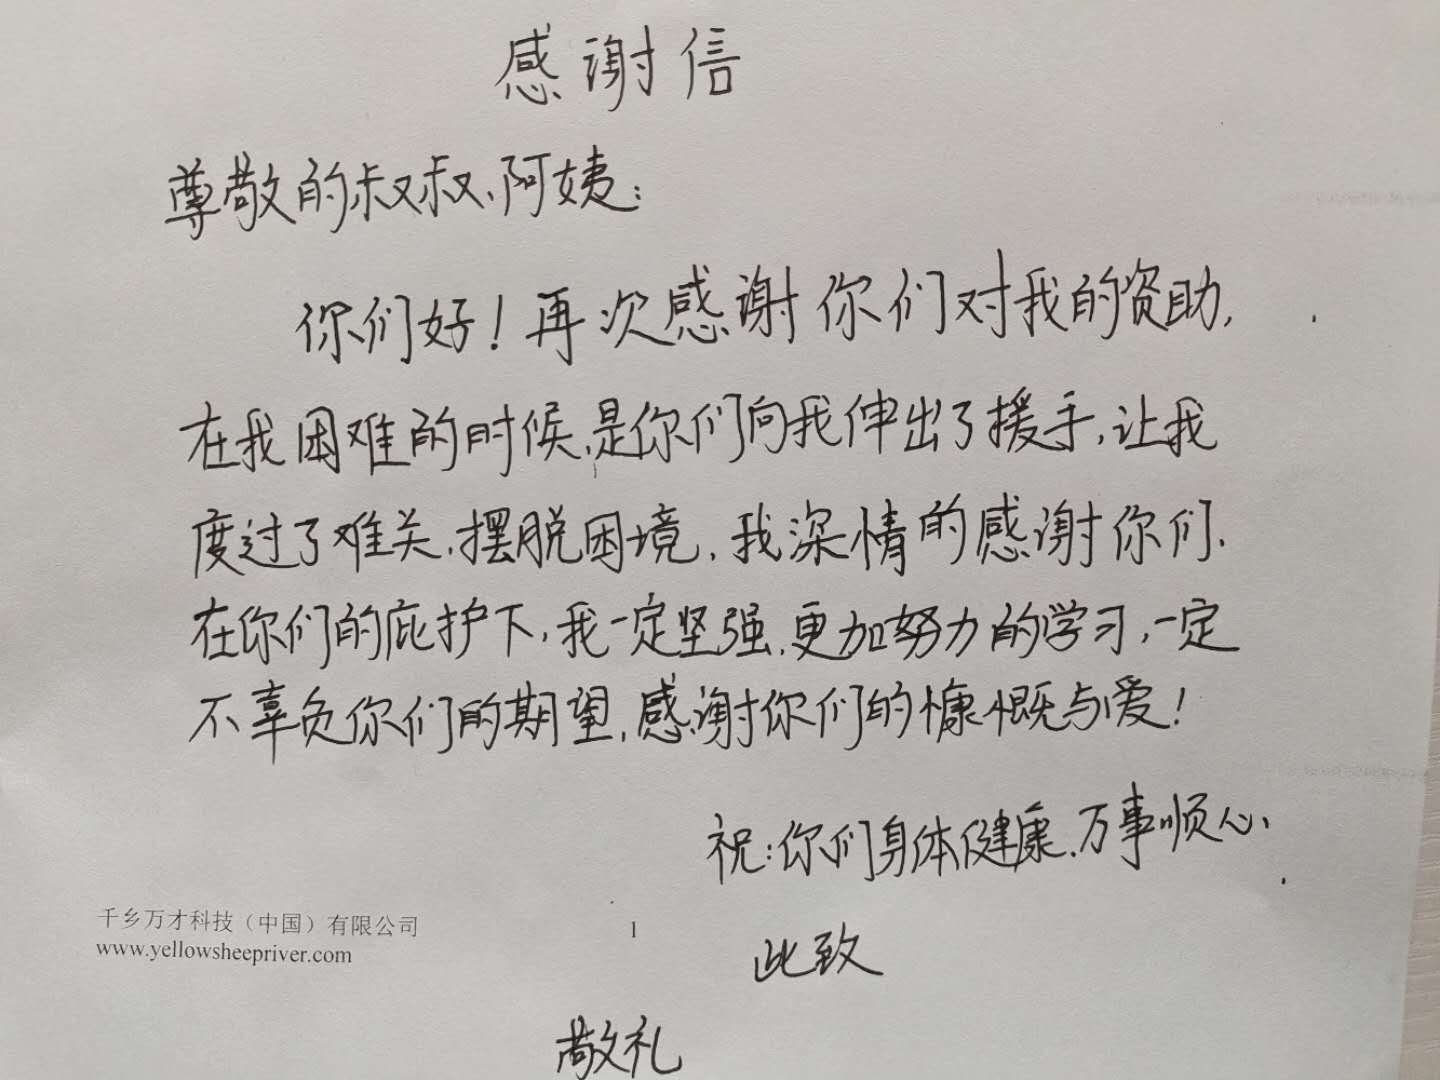 感谢信
尊敬的叔叔、阿姨：
你们好！再次感谢你们对我的资助，
在我困难的时候，是你们向我伸出了援手，让我
度过了难关，摆脱困境，我深情的感谢你们．
在你们的庇护下，我一定坚强，更加努力的学习，一定
不辜负你们的期望，感谢你们的慷慨与爱！
祝：你们身体健康，万事顺心、
千乡万才科技（中国）有限公司
www.yellowsheepriver.com
1
此致
敬礼